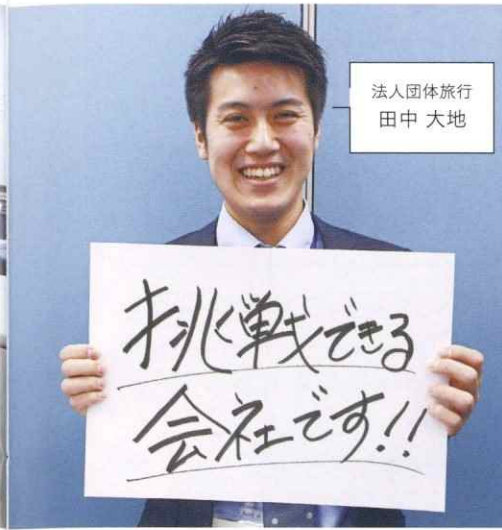 法人団体旅行
田中 大地
挑戦できる
会社です!!